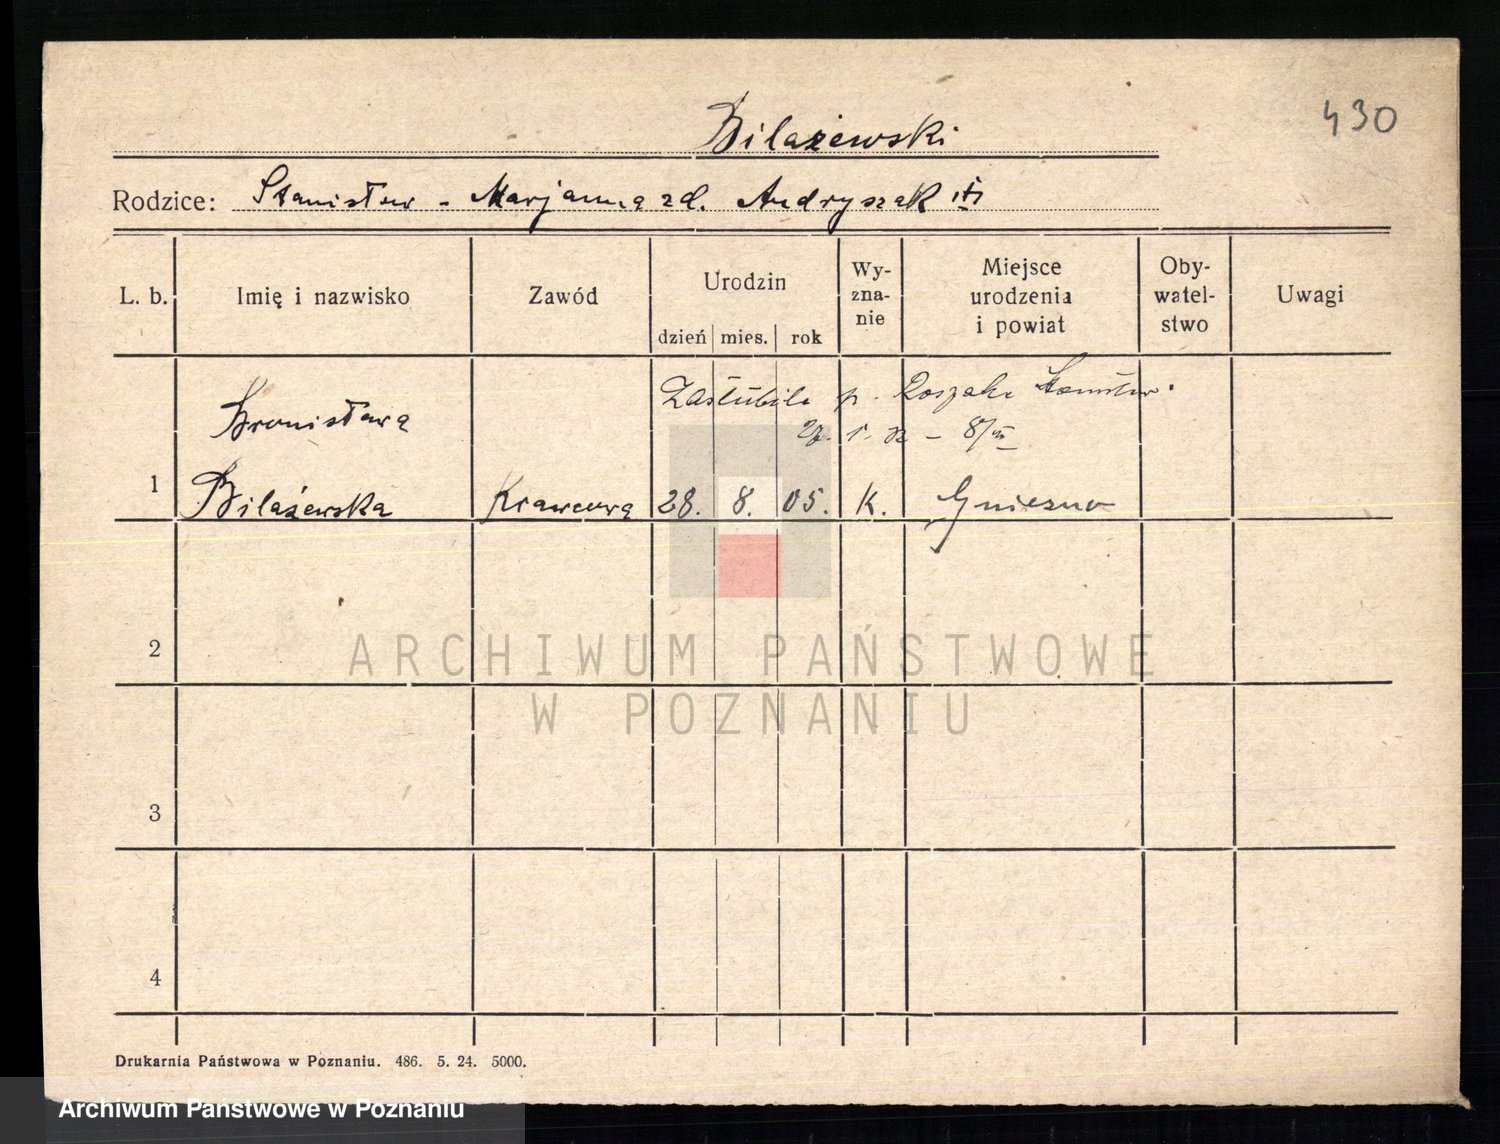 430
Bilażewski
Rodzice: Stanisław - Marjanna zd. Andryszak
L. b. Imię i nazwisko Zawód Urodzin dzień mies. rok Wy-zna-nie Miejsce urodzenia i powiat Oby-watel-stwo Uwagi
Zaślubiła p. Roszaka Stanisław
Bronisława
1 Bilażewska Krawcowa 28. 8. 05. K. Gniezno
2
3
4
ARCHIWUM PAŃSTWOWE
W POZNANIU
Drukarnia Państwowa w Poznaniu. 486. 5. 24. 5000.
Archiwum Państwowe w Poznaniu